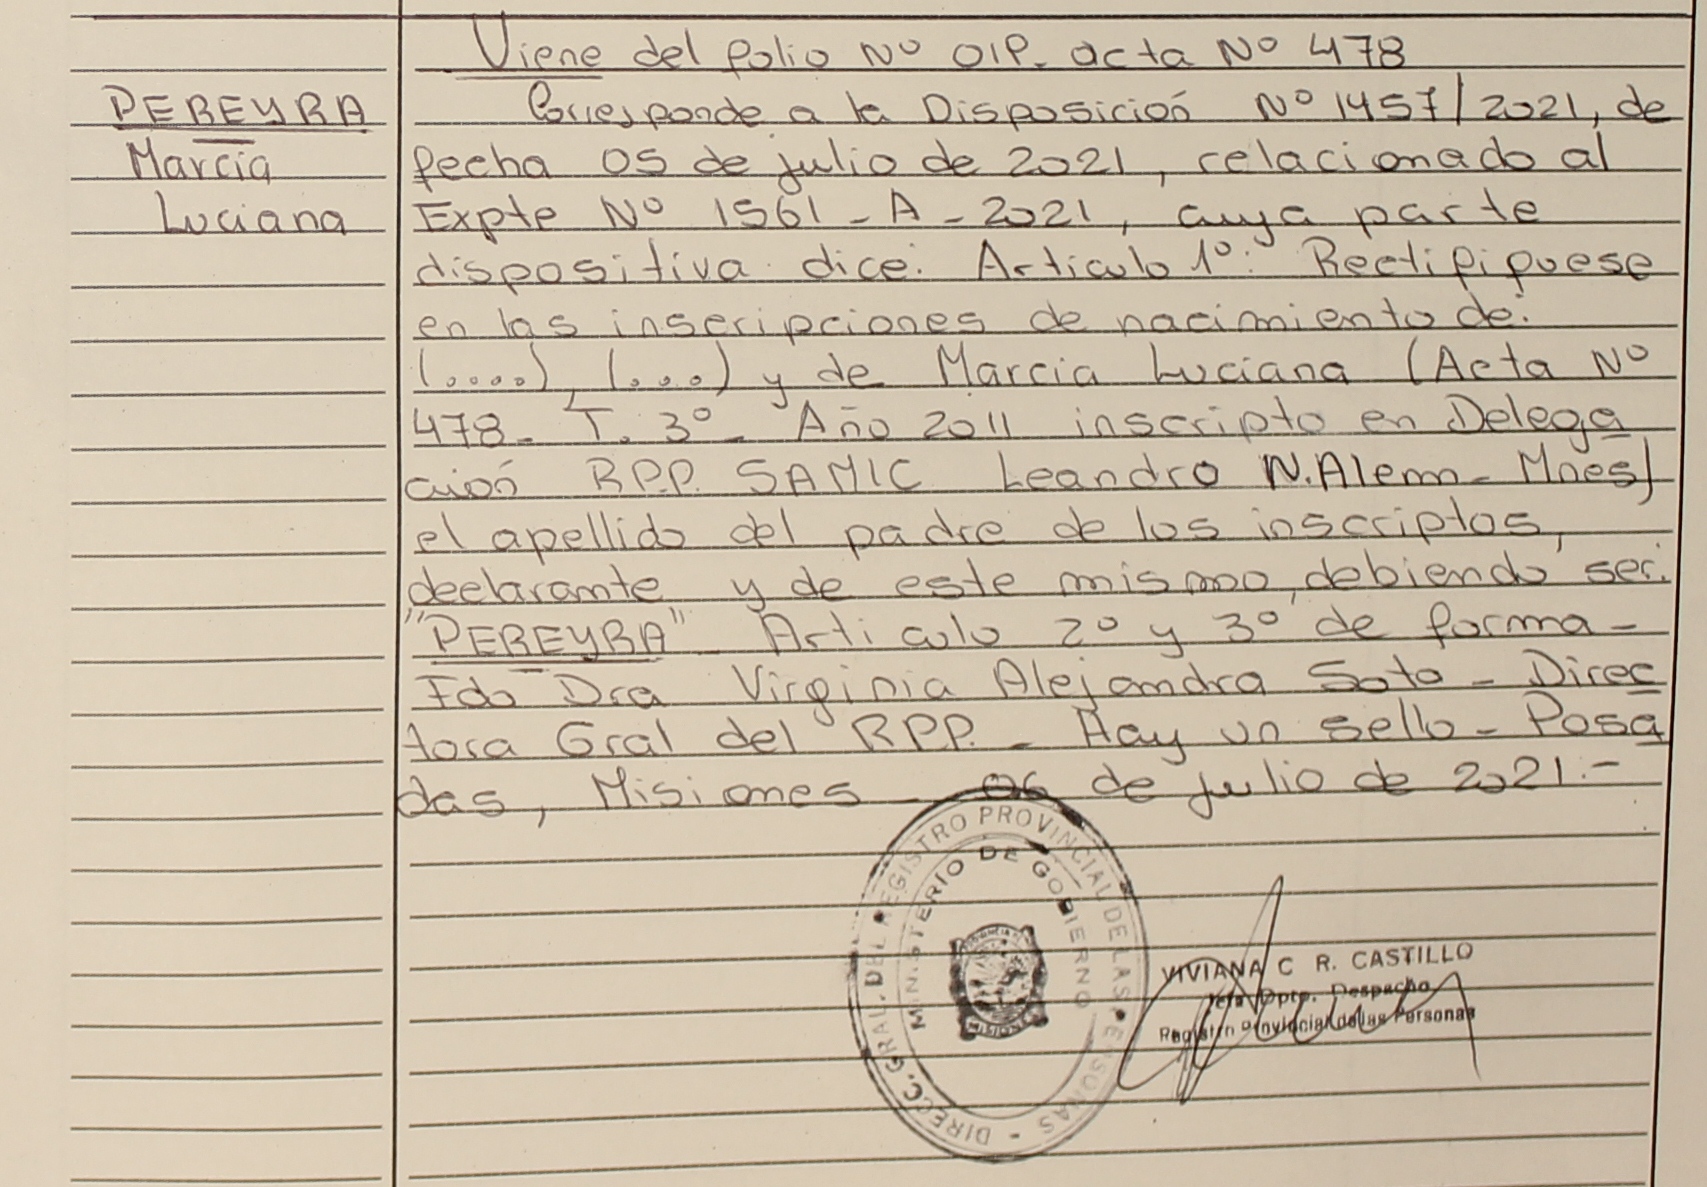 Viene del folio Nº 01P. acta Nº 478
PEREYRA
Marcia
Luciana
Corresponde a la Disposición Nº 1457/2021, de
fecha 05 de julio de 2021, relacionado al
Expte Nº 1561 - A - 2021, cuya parte
dispositiva dice: Articulo 1º: Rectifiquese
en las inscripciones de nacimiento de:
(....), (...) y de Marcia Luciana (Acta Nº
478 - T. 3º - Año 2011 inscripto en Delega
ción R.P.P. SAMIC Leandro N. Alem - Mnes)
el apellido del padre de los inscriptos,
declarante y de este mismo, debiendo ser:
"PEREYRA" - Articulo 2º y 3º de forma -
Fdo Dra Virginia Alejandra Soto - Direc
tora Gral del R.P.P. - Hay un sello - Posa
das, Misiones - 06 de julio de 2021.-
DIRECC. GRAL. DEL REGISTRO PROVINCIAL DE LAS PERSONAS -
MINISTERIO DE GOBIERNO
VIVIANA C R. CASTILLO
Jefa Dpto. Despacho
Registro Provincial de las Personas